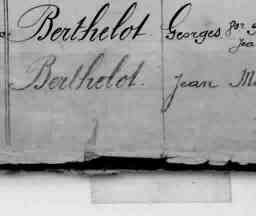 Berthelot Georges
Berthelot. Jean